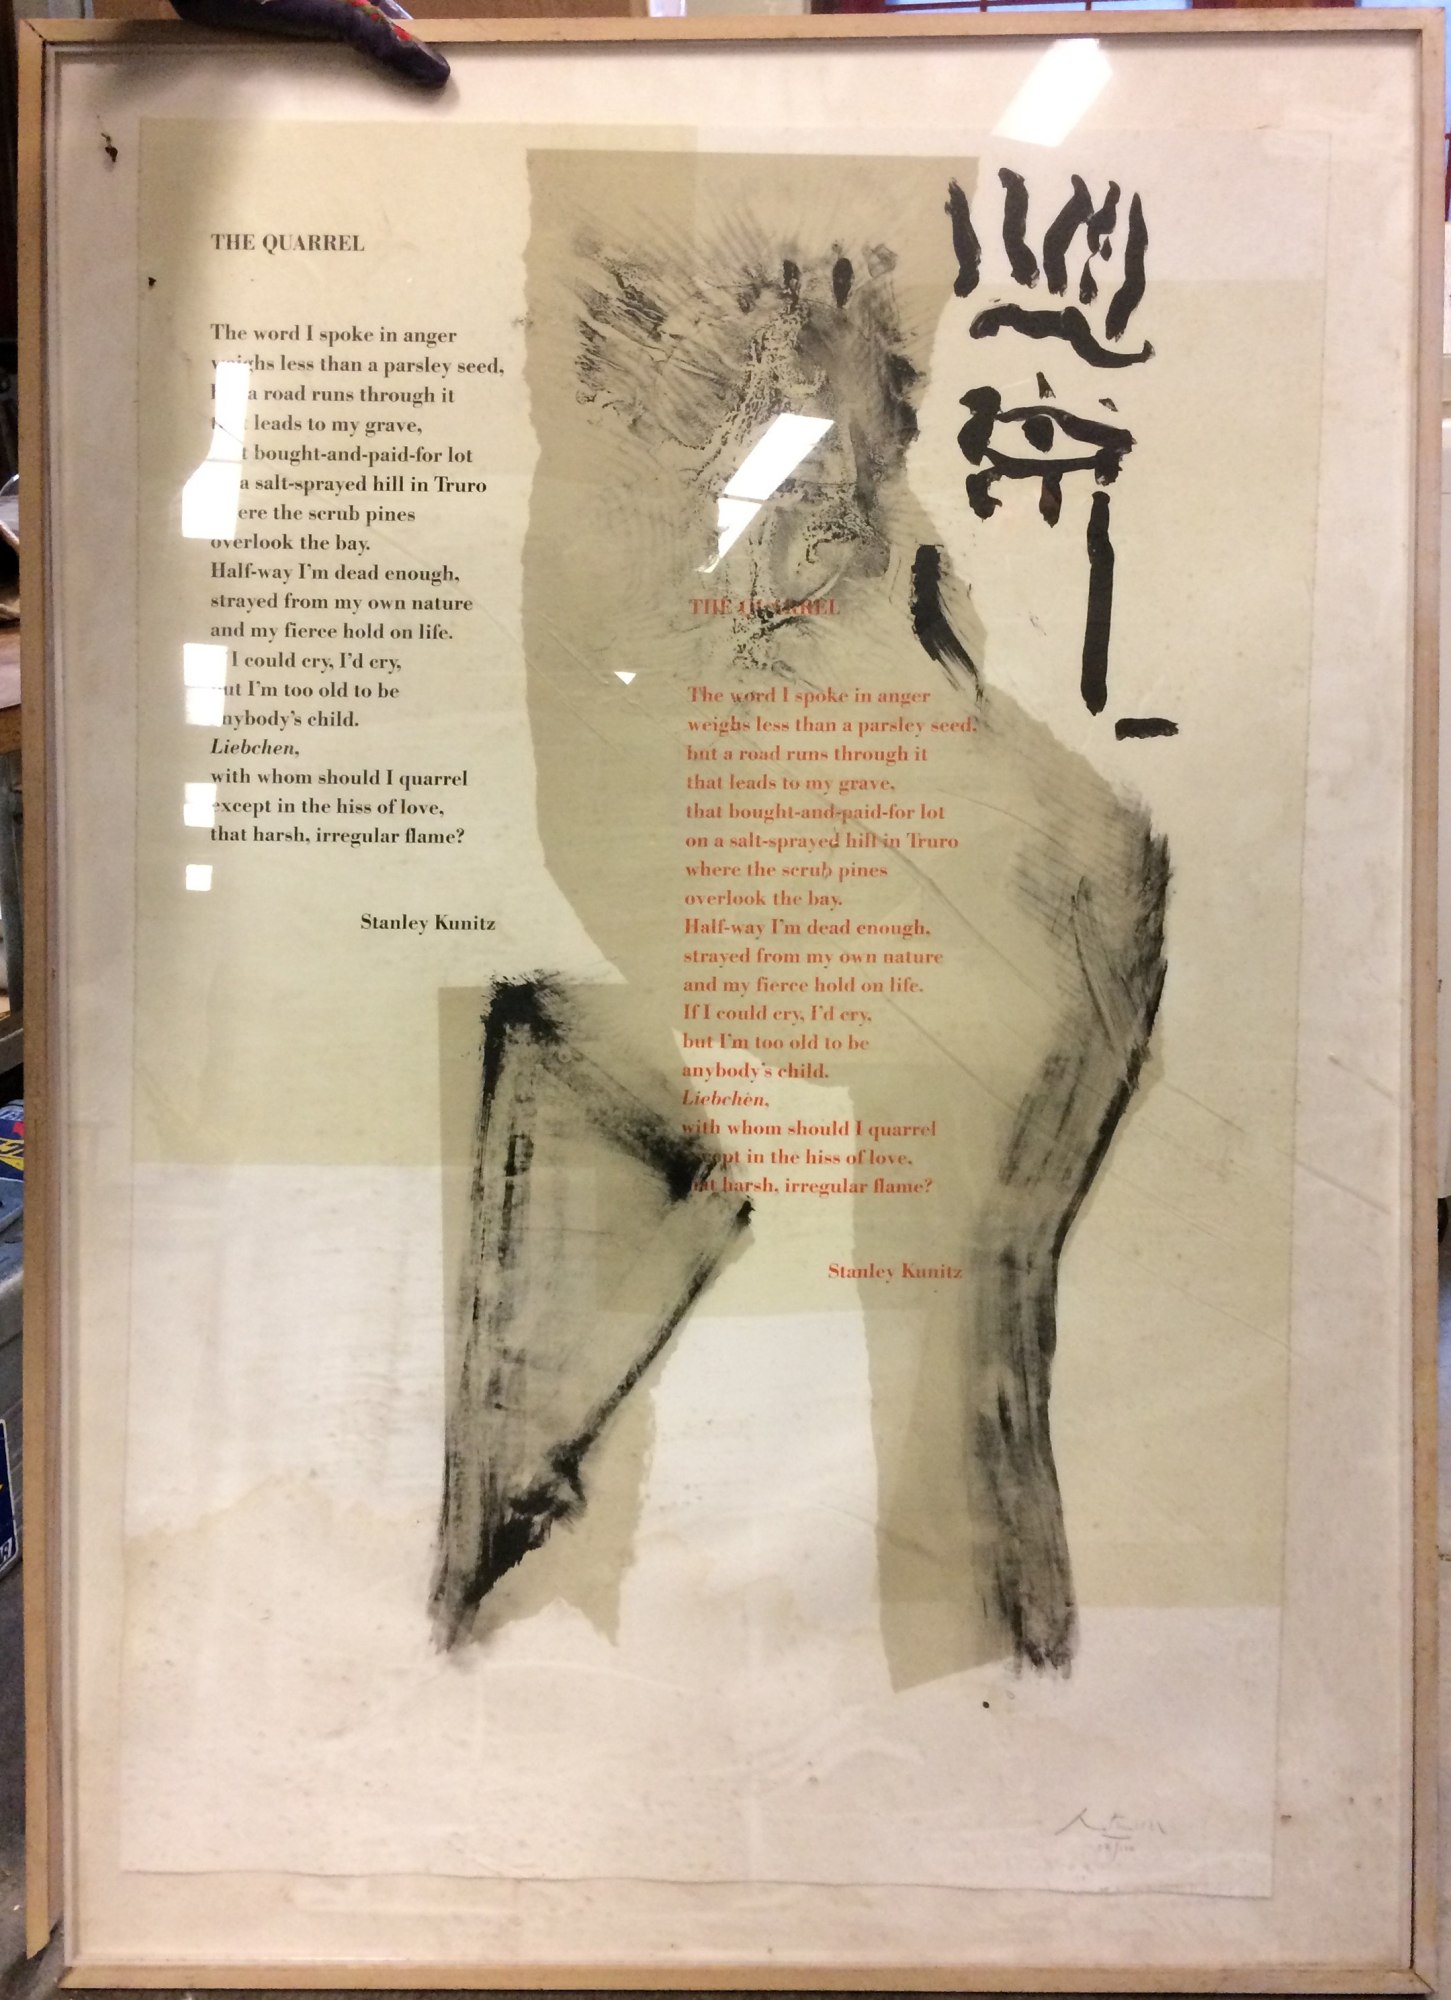 THE QUARREL
The word I spoke in anger
weighs less than a parsley seed,
but a road runs through it
that leads to my grave,
that bought-and-paid-for lot
a salt-sprayed hill in Truro
where the scrub pines
overlook the bay.
Half-way I'm dead enough,
strayed from my own nature
and my fierce hold on life.
If I could cry, I'd cry,
but I'm too old to be
anybody's child.
Liebchen,
with whom should I quarrel
except in the hiss of love,
that harsh, irregular flame?
Stanley Kunitz
THE QUARREL
The word I spoke in anger
weighs less than a parsley seed,
but a road runs through it
that leads to my grave,
that bought-and-paid-for lot
on a salt-sprayed hill in Truro
where the scrub pines
overlook the bay.
Half-way I'm dead enough,
strayed from my own nature
and my fierce hold on life.
If I could cry, I'd cry,
but I'm too old to be
anybody's child.
Liebchen,
with whom should I quarrel
except in the hiss of love,
that harsh, irregular flame?
Stanley Kunitz